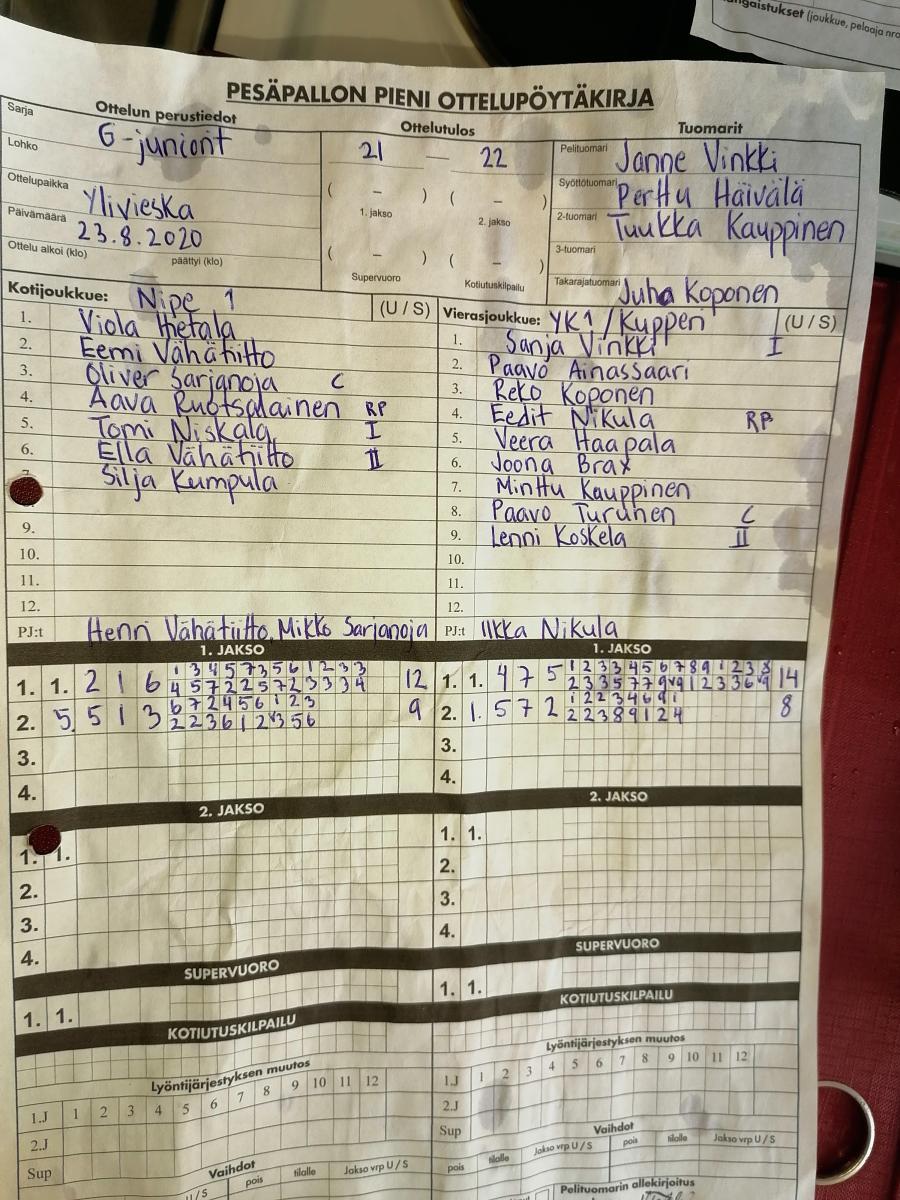 angaistukset (joukkue, pelaaja nro
PESÄPALLON PIENI OTTELUPÖYTÄKIRJA
Ottelun perustiedot
Sarja G-juniorit
Lohko
Ottelupaikka Ylivieska
Päivämäärä 23.8.2020
Ottelu alkoi (klo) päättyi (klo)
Ottelutulos
21 — 22
( – ) ( – )
1. jakso 2. jakso
( – ) ( – )
Supervuoro Kotiutuskilpailu
Tuomarit
Pelituomari Janne Vinkki
Syöttötuomari Perttu Häivälä
2-tuomari Tuukka Kauppinen
3-tuomari
Takarajatuomari Juha Koponen
Kotijoukkue: Nipe 1 (U / S)
1. Viola Hietala
2. Eemi Vähätiitto
3. Oliver Sarjanoja C
4. Aava Ruotsalainen RP
5. Tomi Niskala I
6. Ella Vähätiitto II
Silja Kumpula
9.
10.
11.
12.
PJ:t Henri Vähätiitto, Mikko Sarjanoja
Vierasjoukkue: YK1/Kuppen (U / S)
1. Sanja Vinkki I
2. Paavo Ainassaari
3. Reko Koponen
4. Eedit Nikula RP
5. Veera Haapala
6. Joona Brax
7. Minttu Kauppinen
8. Paavo Turunen C
9. Lenni Koskela II
10.
11.
12.
PJ:t Ilkka Nikula
1. JAKSO
1. 1. 2 1 6 1 3 4 5 7 3 5 6 1 2 3 3 12
4 5 7 2 2 5 7 2 3 3 3 4
2. 5. 5 1 3 6 7 2 4 5 6 1 2 3 9
2 2 3 6 1 2 3 5 6
3.
4.
1. JAKSO
1. 1. 4 7 5 1 2 3 3 4 5 6 7 8 9 1 2 3 8 14
2 3 3 5 7 7 9 9 1 2 3 3 6 9
2. 1. 5 7 2 1 2 2 3 4 6 9 1 8
2 2 3 8 9 1 2 4
3.
4.
2. JAKSO
1. 1.
2.
3.
4.
2. JAKSO
1. 1.
2.
3.
4.
SUPERVUORO
1. 1.
SUPERVUORO
1. 1.
KOTIUTUSKILPAILU
KOTIUTUSKILPAILU
Lyöntijärjestyksen muutos
1.J 1 2 3 4 5 6 7 8 9 10 11 12
2.J
Sup
Lyöntijärjestyksen muutos
1.J 1 2 3 4 5 6 7 8 9 10 11 12
2.J
Sup
Vaihdot
U / S pois tilalle Jakso vrp U / S
Vaihdot
pois tilalle Jakso vrp U / S pois tilalle Jakso vrp U / S
Pelituomarin allekirjoitus